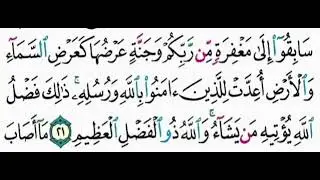 سَابِقُوٓا۟ إِلَىٰ مَغْفِرَةٍ مِّن رَّبِّكُمْ وَجَنَّةٍ عَرْضُهَا كَعَرْضِ السَّمَآءِ
وَالْأَرْضِ أُعِدَّتْ لِلَّذِينَ ءَامَنُوا۟ بِاللَّهِ وَرُسُلِهِۦ ۚ ذَٰلِكَ فَضْلُ
اللَّهِ يُؤْتِيهِ مَن يَشَآءُ ۚ وَاللَّهُ ذُو الْفَضْلِ الْعَظِيمِ ٢١ مَآ أَصَابَ